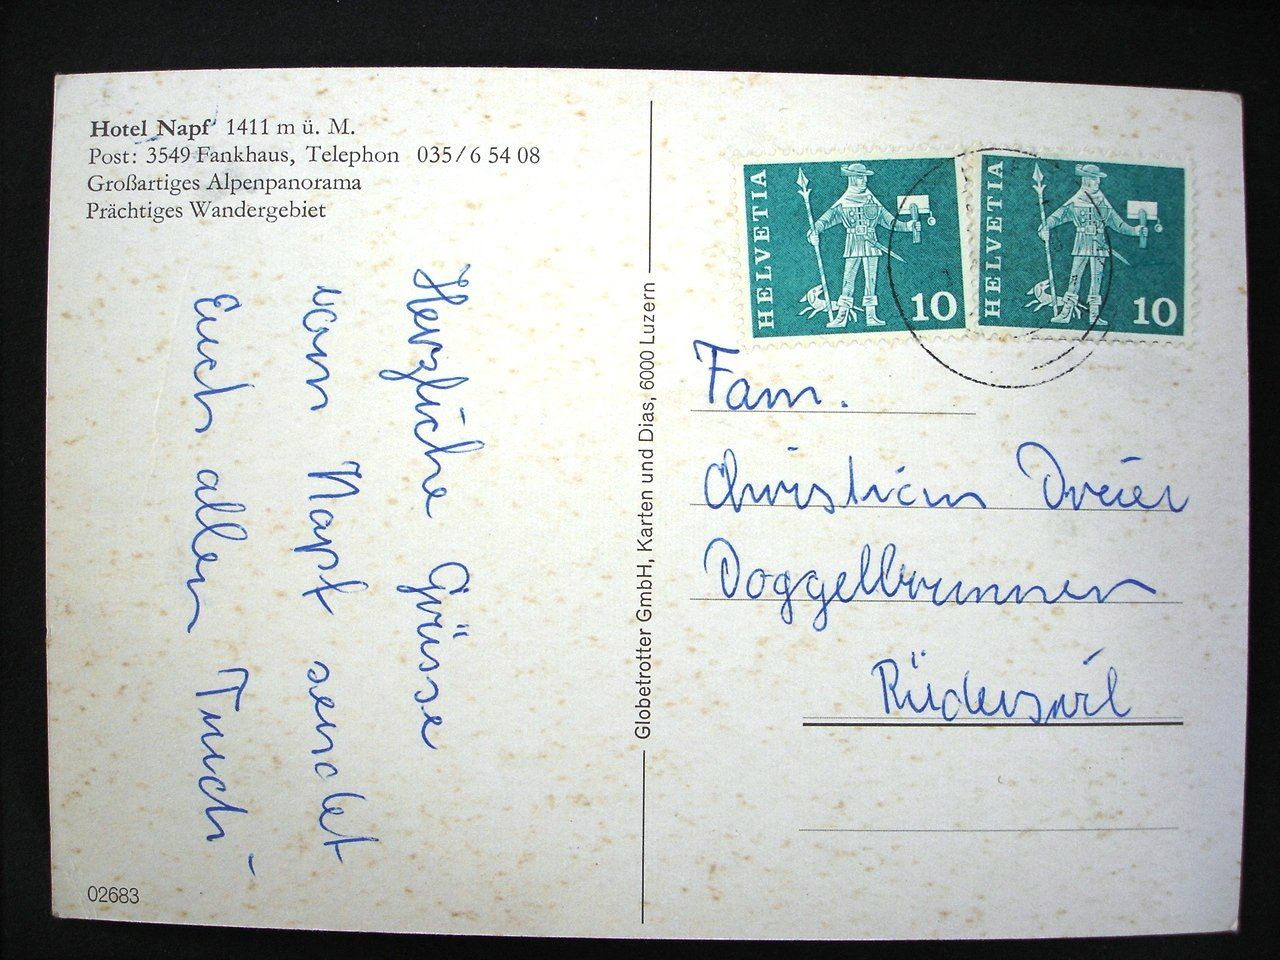 Hotel Napf 1411 m ü. M.
Post: 3549 Fankhaus, Telephon 035/6 54 08
Großartiges Alpenpanorama
Prächtiges Wandergebiet
Herzliche Grüsse
vom Napf sendet
Euch allen Truch-
02683
Globetrotter GmbH, Karten und Dias, 6000 Luzern
HELVETIA 10
HELVETIA 10
Fam.
Christian Dreier
Doggelbrunnen
Rüderswil